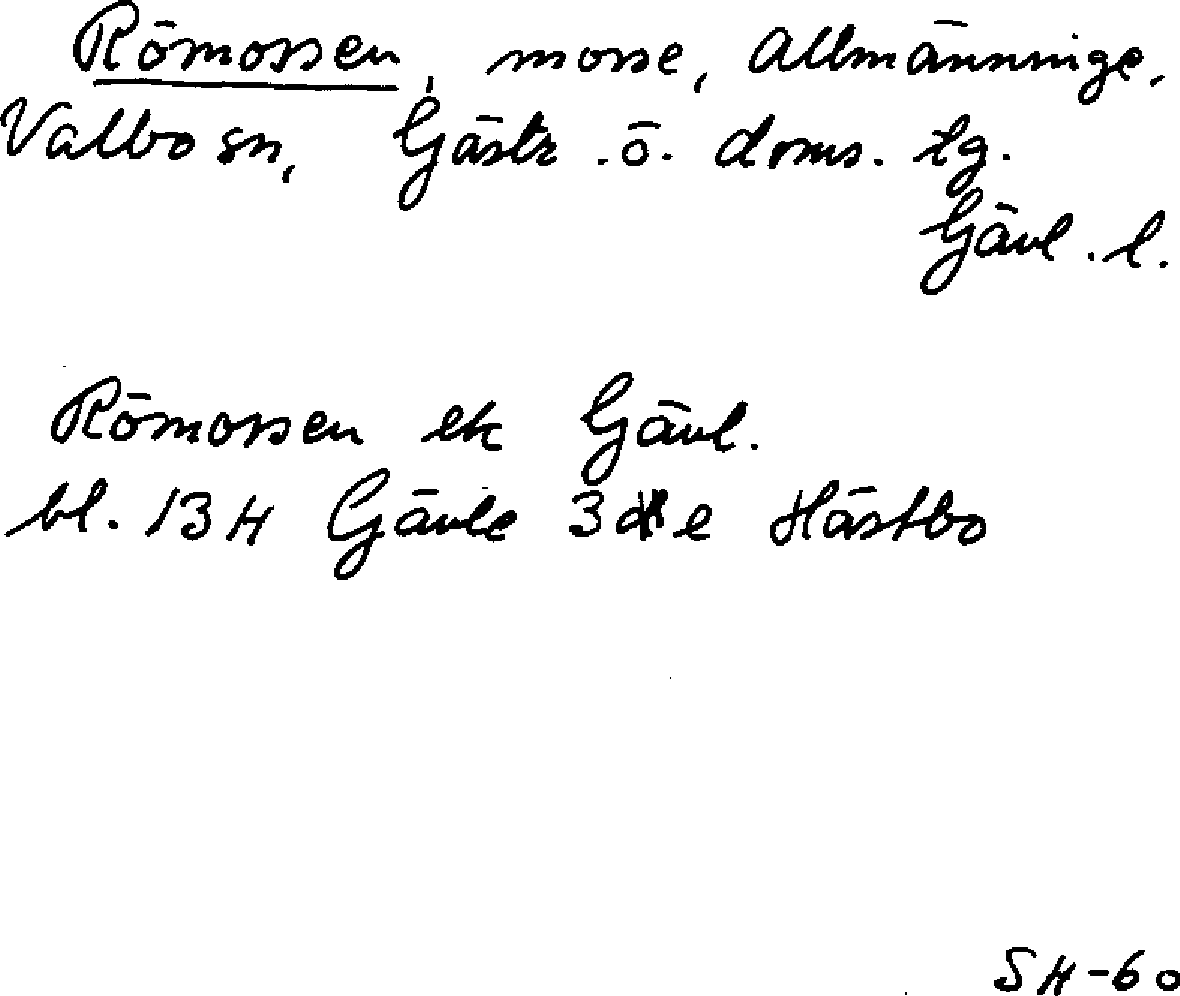 Römossen, mosse, Allmänninge,
Valbo sn, Gästr. ö. doms. tg.
Gävl. l.
Römossen ek Gävl.
bl. 13H Gävle 3 d e Hästbo
SH-60